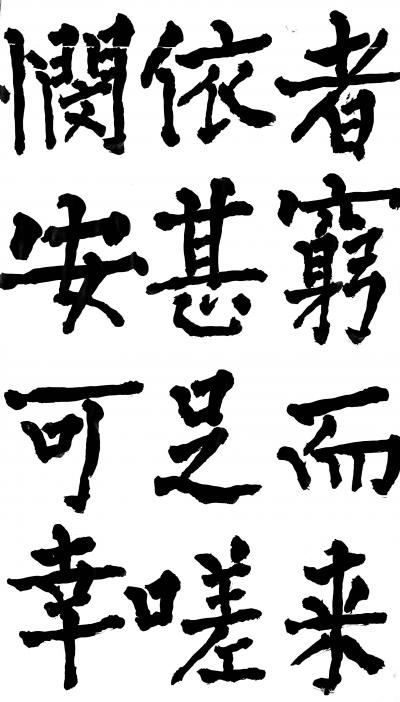 者窮而来
依甚足嗟
憫安可幸